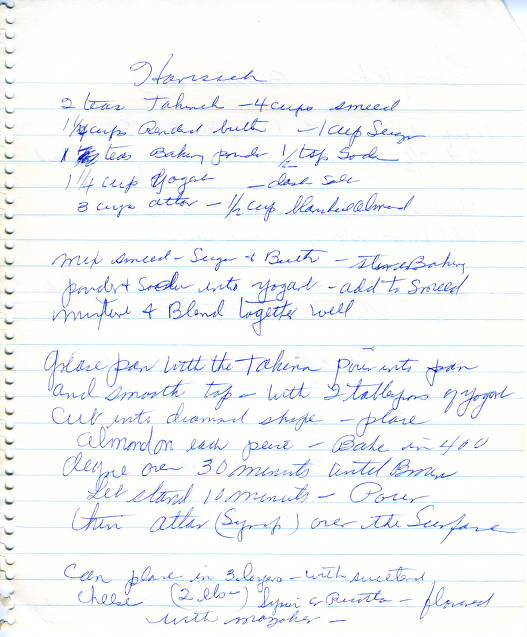 Harisseh
2 teas Tahineh - 4 cups smeed
1 1/4 cups Rended butter - 1 cup Sugar
1 teas Baking powder 1/2 tsp Soda
1 1/4 cup Yogart - dash salt
3 cups attar - 1/2 cup blanched almond
Mix smeed - Sugar & Butter - Baking
powder & Soda into yogart - add to Smeed
mixture & Blend together well
Grease pan with the Tahina Pour into pan
and smooth top - with 2 tablespons of yogart
Cut into diamond shape - place
almond on each peice - Bake in 400
degree oven 30 minuts until Brown
Let stand 10 minuts - Pour
then attar (Syrup) over the Surface
Can place in 3 layers - with sweetend
cheese (2 lbs -) Syrian or Ricotta - flavored
with mazaher -